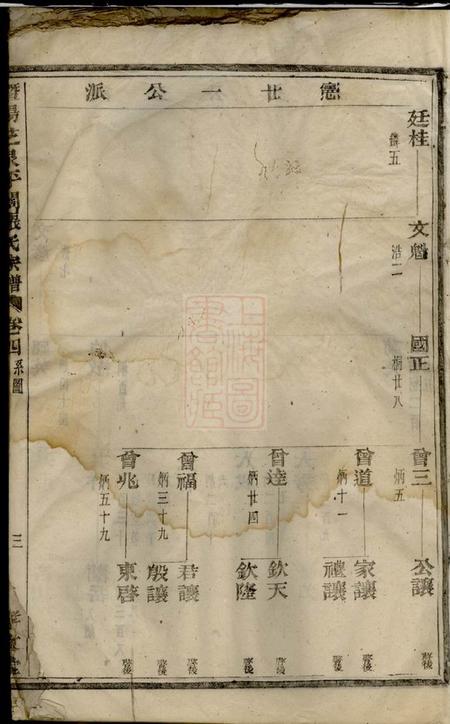 憲廿一公派
廷桂
文魁
浩二
國正
桐廿八
曾三
炳五
公讓
曾道
炳十一
家讓
禮讓
曾達
炳廿四
欽天
欽隆
曾福
炳三十九
君讓
殷讓
曾兆
炳五十九
東啓
張氏宗譜
卷四
系圖
三
上海圖書館藏